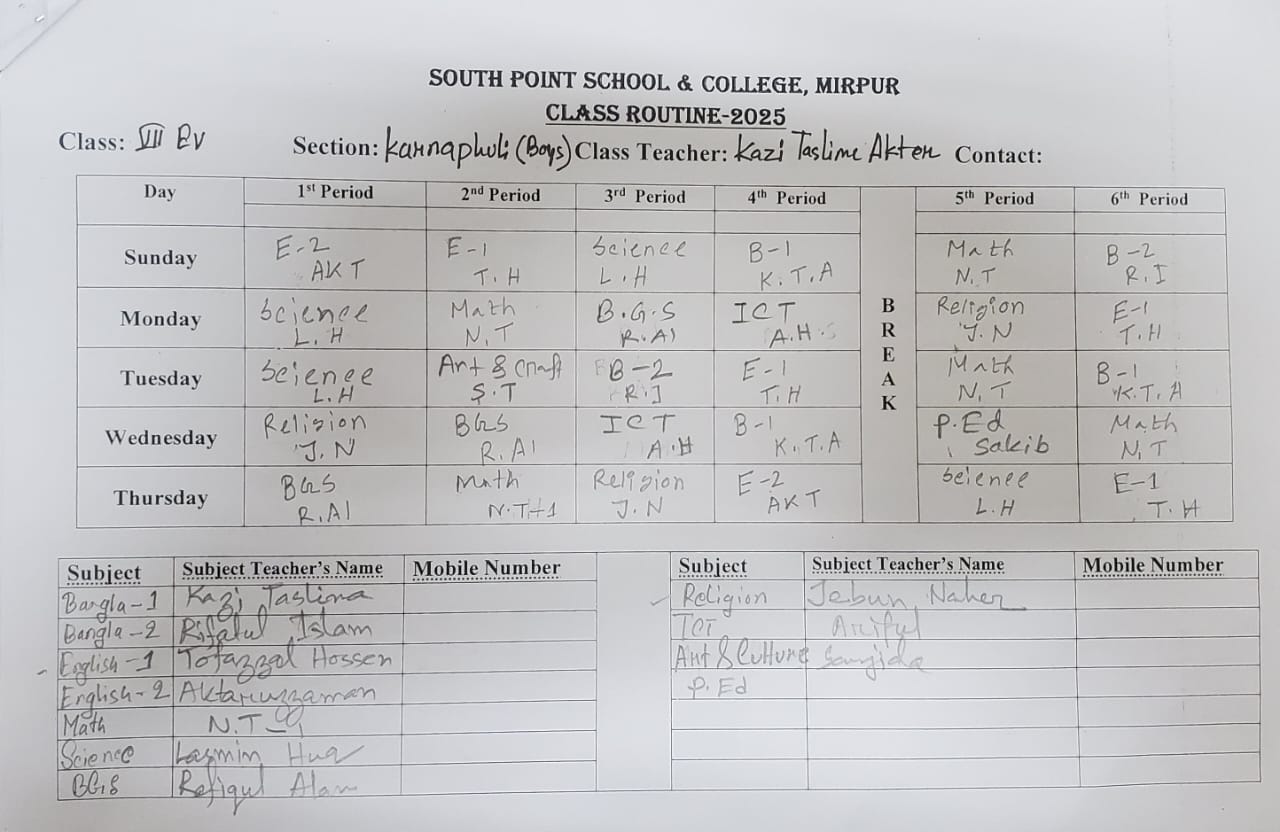 SOUTH POINT SCHOOL & COLLEGE, MIRPUR
CLASS ROUTINE-2025
Class: VII EV Section: Karnaphuli (Boys) Class Teacher: Kazi Taslime Akter Contact:
Day 1st Period 2nd Period 3rd Period 4th Period BREAK 5th Period 6th Period
Sunday E-2 E-1 Science B-1 Math B-2
AKT T.H L.H K.T.A N.T R.I
Monday Science Math B.G.S ICT Religion E-1
L.H N.T R.Al A.H J.N T.H
Tuesday Science Art & Craft B-2 E-1 Math B-1
L.H S.T R.I T.H N.T K.T.A
Wednesday Religion BGS ICT B-1 P.Ed Math
J.N R.Al A.H K.T.A Sakib N.T
Thursday BGS Math Religion E-2 Science E-1
R.Al J.N AKT L.H T.H
Subject Subject Teacher's Name Mobile Number Subject Subject Teacher's Name Mobile Number
Bangla-1 Kazi Taslima Religion Jebun Naher
Bangla-2 Rifatul Islam ICT Ariful
English-1 Tofazzal Hossen Art & Culture Sanjida
English-2 Aktaruzzaman P.Ed
Math N.T
Science Lasmin Huq
BGS Refiqul Alam